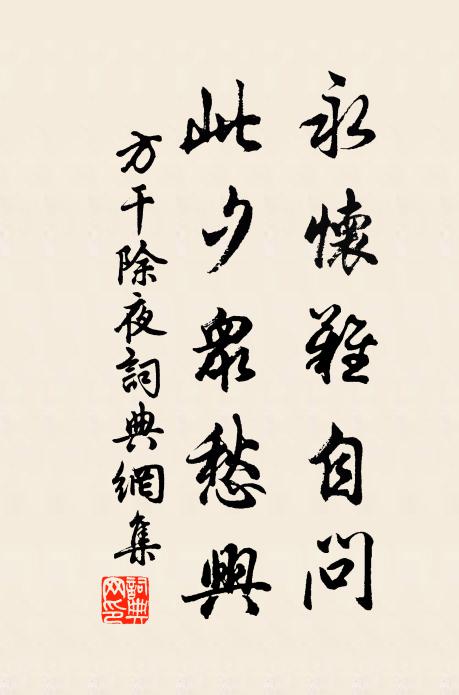 永懷難自問
此夕眾愁興
方干除夜詞典網集
詞典網印